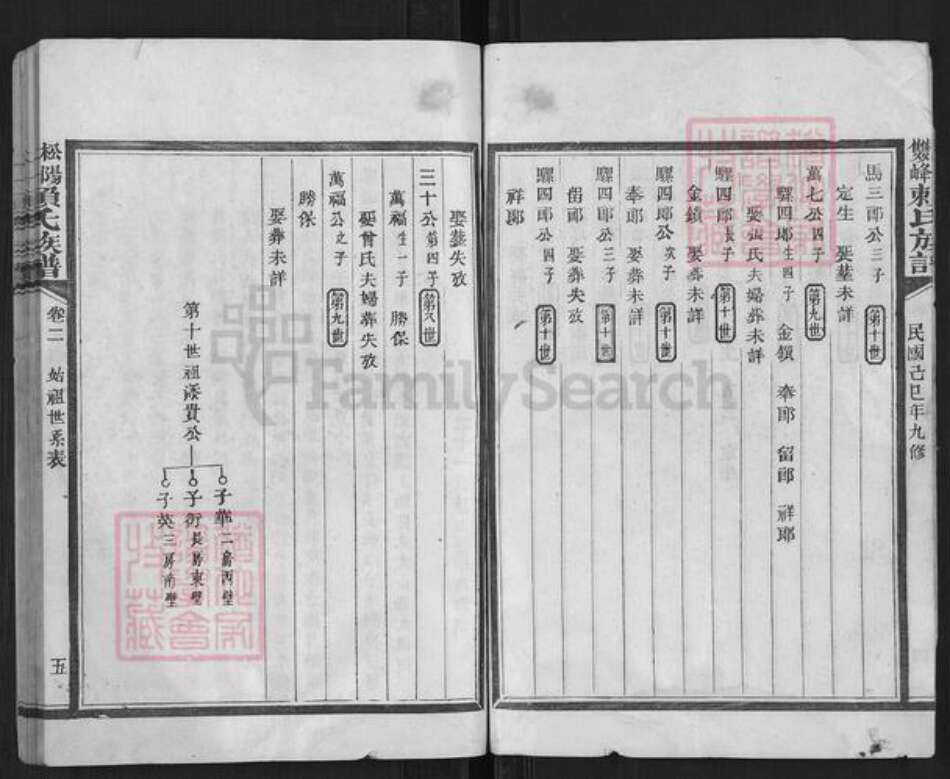 雙峰賴氏族譜
民國己巳年九修
馬三郎公三子 第十世
定生 娶葬未詳
萬七公四子 第九世
驛四郎生四子 金鎖 奉郎 留郎 祥郎
娶張氏夫婦葬未詳
驛四郎長子 第十世
金鎖 娶葬未詳
驛四郎公次子 第十世
奉郎 娶葬未詳
驛四郎公三子 第十世
留郎 娶葬失攷
驛四郎公四子 第十世
祥郎
娶葬失攷
三十公第四子 第八世
萬福生一子 勝保
娶曾氏夫婦葬失攷
萬福公之子 第九世
勝保
娶葬未詳
第十世祖 貴公
子華 二房西璧
子衍 長房東璧
子英 三房南璧
松陽賴氏族譜
卷二 始祖世系表
五
FamilySearch